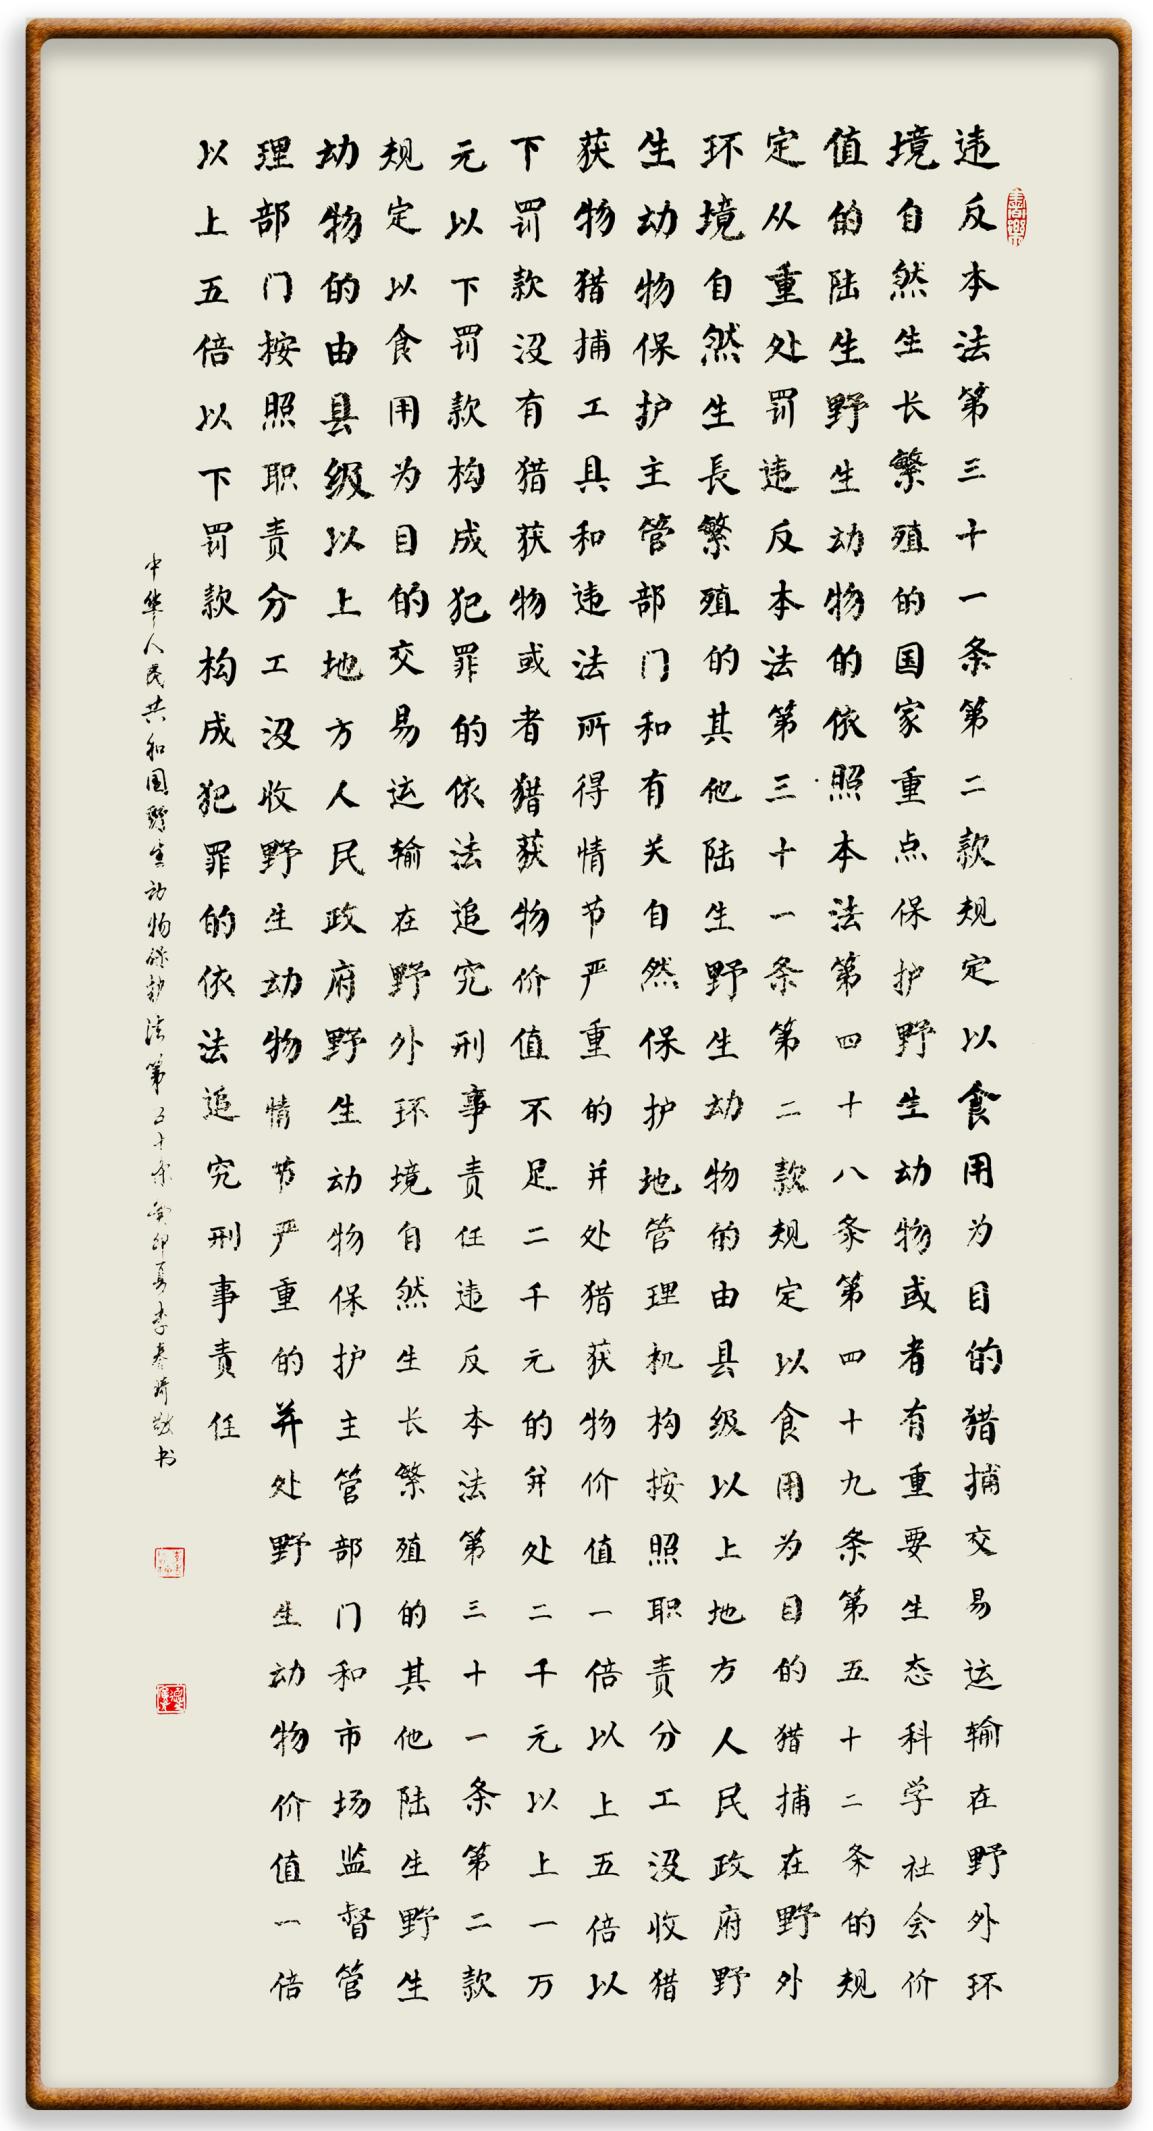 违反本法第三十一条第二款规定以食用为目的猎捕交易运输在野外环
境自然生长繁殖的国家重点保护野生动物或者有重要生态科学社会价
值的陆生野生动物的依照本法第四十八条第四十九条第五十二条的规
定从重处罚违反本法第三十一条第二款规定以食用为目的猎捕在野外
环境自然生長繁殖的其他陆生野生动物的由县级以上地方人民政府野
生动物保护主管部门和有关自然保护地管理机构按照职责分工没收猎
获物猎捕工具和违法所得情节严重的并处猎获物价值一倍以上五倍以
下罚款没有猎获物或者猎获物价值不足二千元的并处二千元以上一万
元以下罚款构成犯罪的依法追究刑事责任违反本法第三十一条第二款
规定以食用为目的交易运输在野外环境自然生长繁殖的其他陆生野生
动物的由县级以上地方人民政府野生动物保护主管部门和市场监督管
理部门按照职责分工没收野生动物情节严重的并处野生动物价值一倍
以上五倍以下罚款构成犯罪的依法追究刑事责任
中华人民共和国野生动物保护法第五十条癸卯夏李春琦敬书